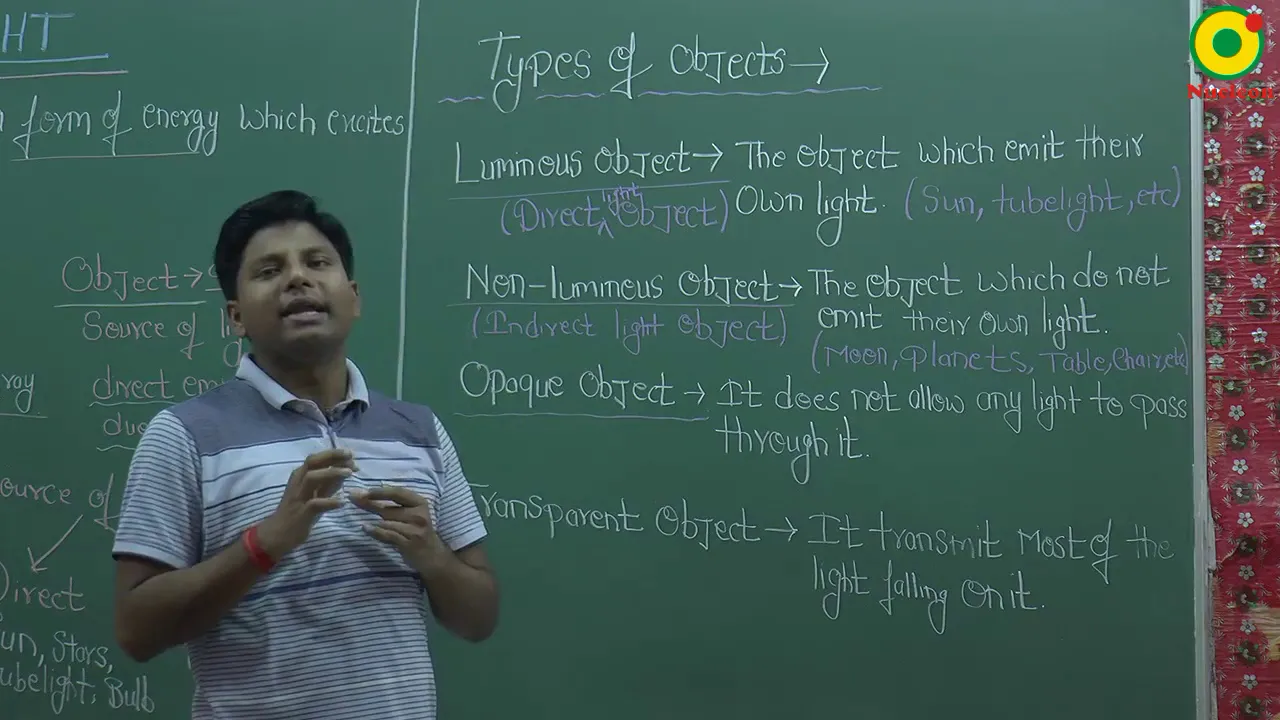 HT
form of energy which excites
Object →
Source of
ray
direct
Source of
Direct
Sun, Stars,
Tubelight, Bulb
Types of Objects →
Luminous Object → The Object which emit their
(Direct light Object) Own light. (Sun, tubelight, etc)
Non-luminous Object → The Object which do not
(Indirect light Object) emit their Own light.
(Moon, Planets, Table, Chair, etc)
Opaque Object → It does not allow any light to pass
through it.
Transparent Object → It transmit Most of the
light falling On it.
Nucleon